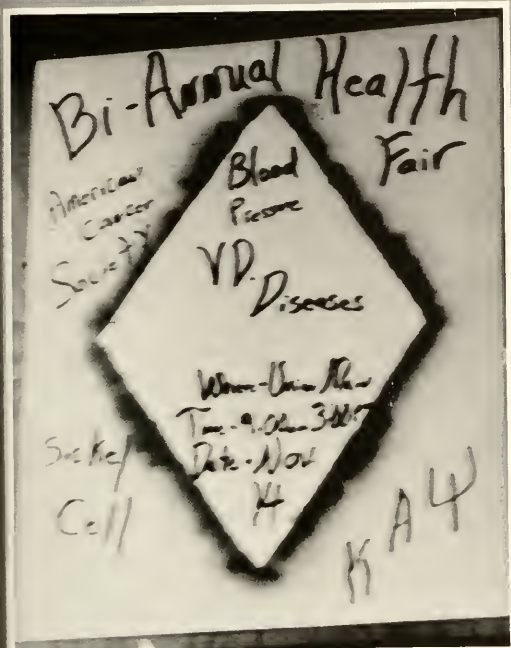 Bi-Annual Health
Fair
American
Cancer
Society
Blood
Pressure
VD.
Diseases
Where-Union
Time-9:00
Date-Nov
14
Sickel
Cell
ΚΑΨ